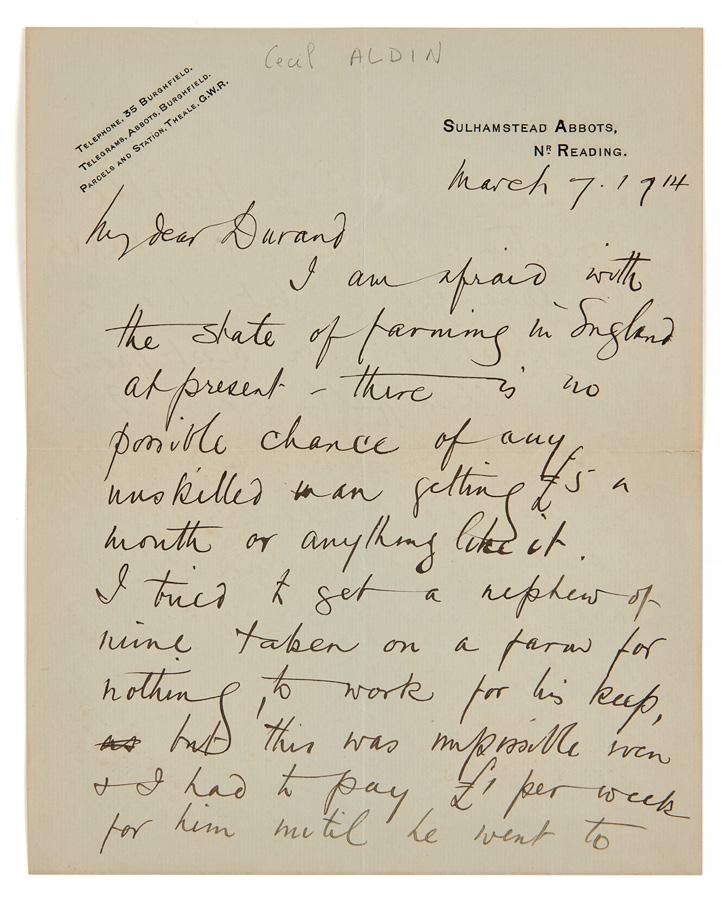 Cecil ALDIN
TELEPHONE, 35 BURGHFIELD.
TELEGRAMS, ABBOTS, BURGHFIELD.
PARCELS AND STATION, THEALE, G.W.R.
SULHAMSTEAD ABBOTS,
NR READING.
March 7. 1914
My dear Durand
I am afraid with
the state of farming in England
at present - there is no
possible chance of any
unskilled man getting £5 a
month or anything like it.
I tried to get a nephew of
mine taken on a farm for
nothing, to work for his keep,
as but this was impossible even
& I had to pay £1 per week
for him until he went to